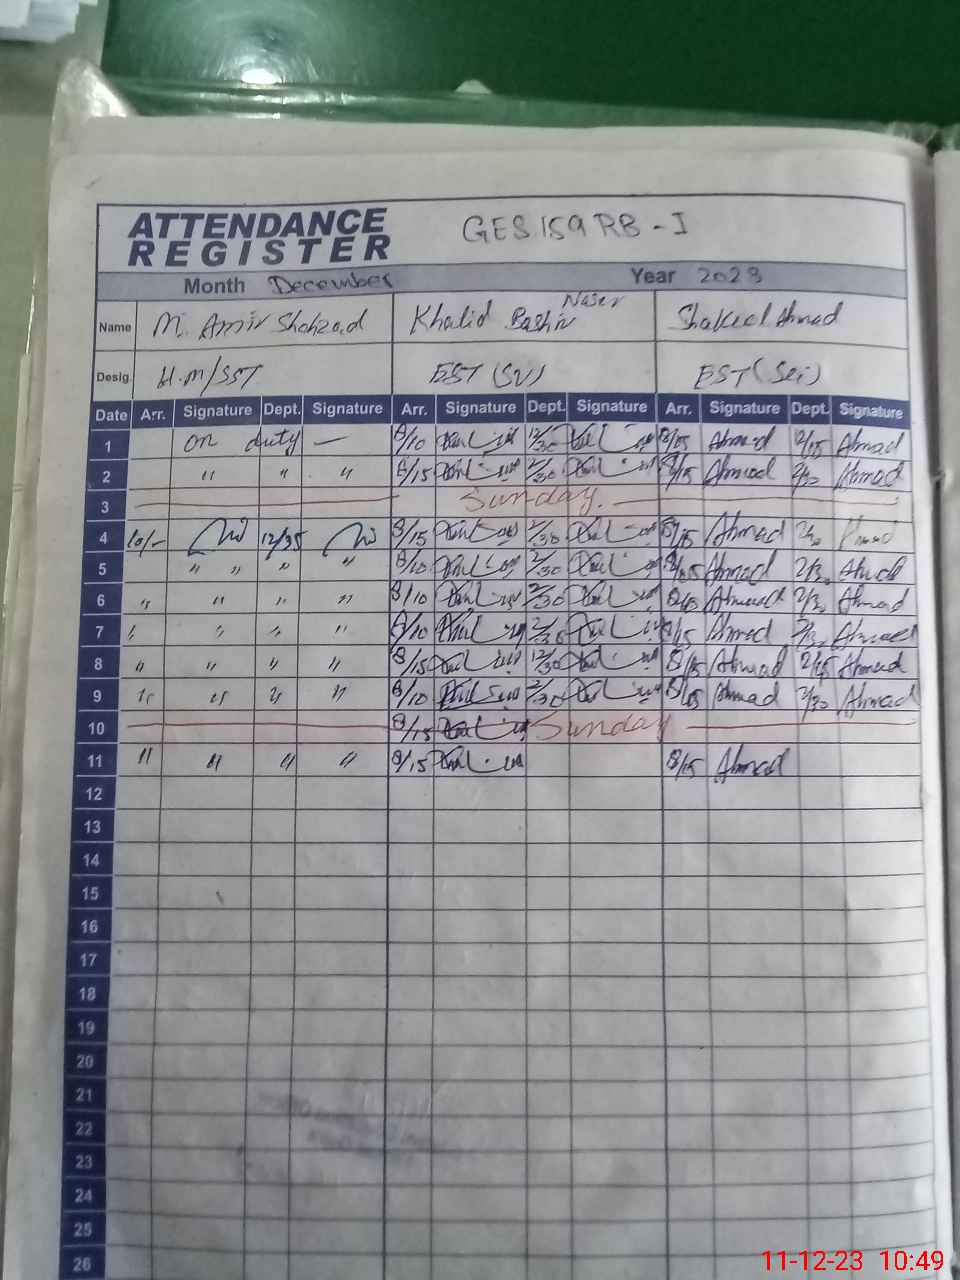 ATTENDANCE REGISTER GES 159 RB - I
Month December Year 2023
Name M. Amir Shahzad Khalid Bashir Naser Shakeel Ahmad
Desig. H.M/SST EST (SV) EST (Sci)
Date Arr. Signature Dept. Signature Arr. Signature Dept. Signature Arr. Signature Dept. Signature
1 on duty — 8/10 12/30 8/15 Ahmad 12/15 Ahmad
2 " " " 8/15 2/30 8/15 Ahmad 2/30 Ahmad
3 Sunday.
4 10/- 12/35 8/15 2/30 8/15 Ahmad Ahmad
5 " " " " 8/10 2/30 8/15 Ahmad 2/30 Ahmad
6 " " " " 8/10 2/30 8/15 Ahmad 2/30 Ahmad
7 " " " " 8/10 2/30 8/15 Ahmad 2/30 Ahmad
8 " " " " 8/15 12/30 8/15 Ahmad 12/15 Ahmad
9 " " " " 8/10 2/30 8/15 Ahmad 2/30 Ahmad
10 8/15 Sunday
11 " " " " 8/15 8/15 Ahmad
12
13
14
15
16
17
18
19
20
21
22
23
24
25
26
11-12-23 10:49